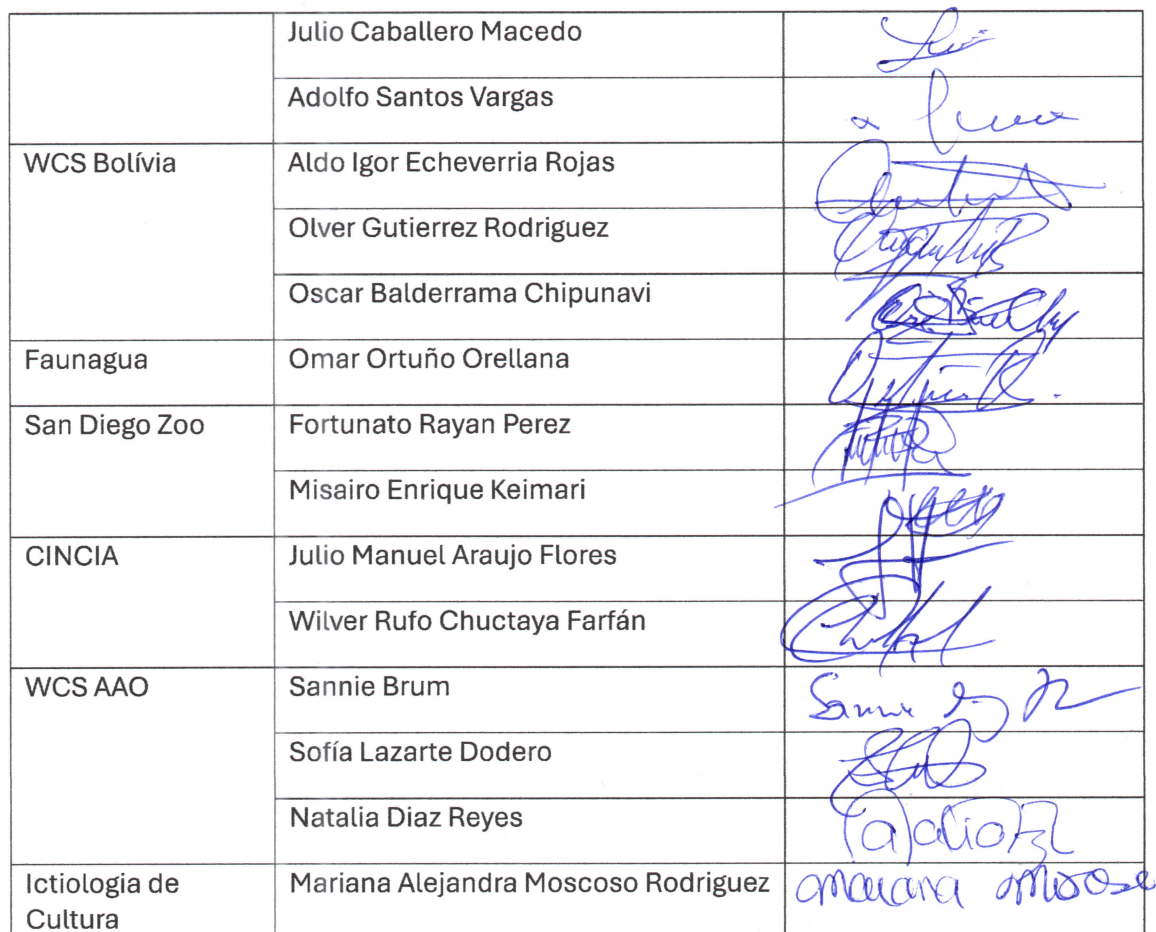 Julio Caballero Macedo
Adolfo Santos Vargas
WCS Bolívia
Aldo Igor Echeverria Rojas
Olver Gutierrez Rodriguez
Oscar Balderrama Chipunavi
Faunagua
Omar Ortuño Orellana
San Diego Zoo
Fortunato Rayan Perez
Misairo Enrique Keimari
CINCIA
Julio Manuel Araujo Flores
Wilver Rufo Chuctaya Farfán
WCS AAO
Sannie Brum
Sofía Lazarte Dodero
Natalia Diaz Reyes
Ictiologia de
Cultura
Mariana Alejandra Moscoso Rodriguez